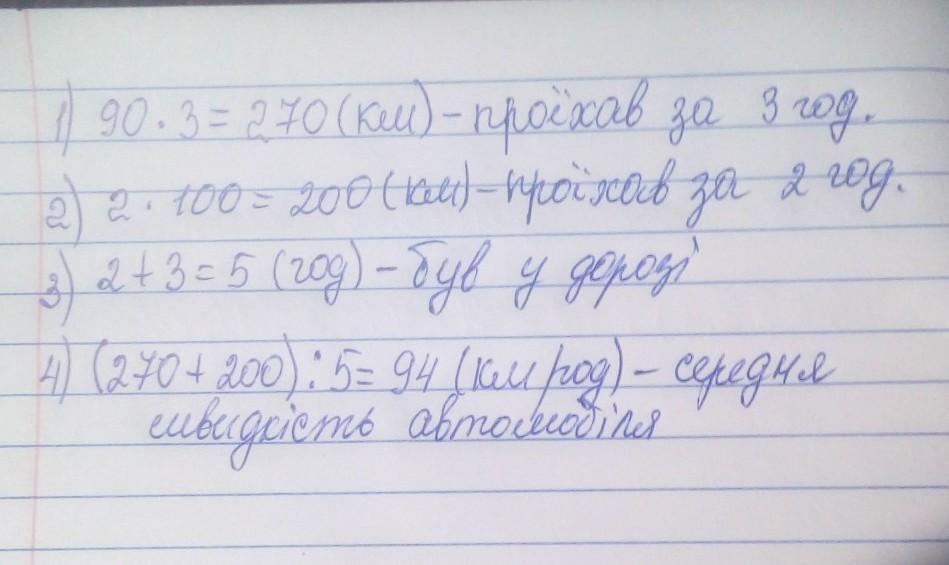 1) 90 · 3 = 270 (км) – проїхав за 3 год.
2) 2 · 100 = 200 (км) – проїхав за 2 год.
3) 2 + 3 = 5 (год) – був у дорозі
4) (270 + 200) : 5 = 94 (км/год) – середня
швидкість автомобіля